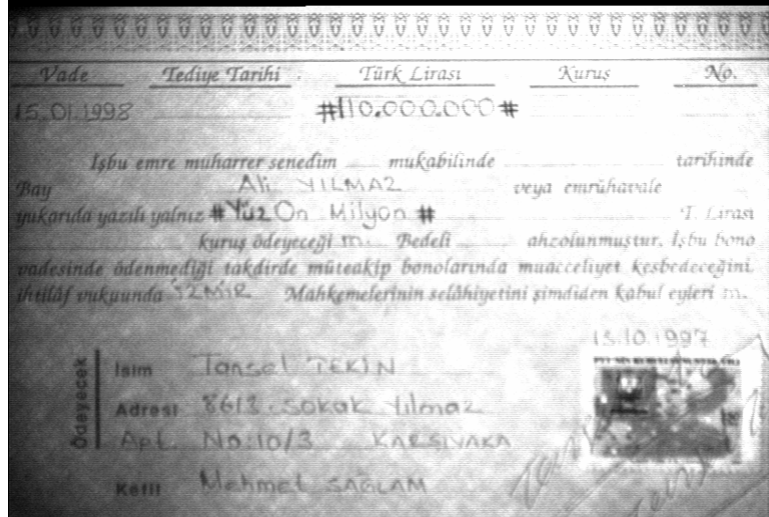 Vade Tediye Tarihi Türk Lirası Kuruş No.
15.01.1998 #110.000.000#
İşbu emre muharrer senedim mukabilinde tarihinde
Bay Ali YILMAZ veya emrühavale
yukarıda yazılı yalnız #Yüz On Milyon # T. Lirası
kuruş ödeyeceği m. Bedeli ahzolunmuştur. İşbu bono
vadesinde ödenmediği takdirde müteakip bonolarında muacceliyet kesbedeceğini
ihtilâf vukuunda İZMİR Mahkemelerinin selâhiyetini şimdiden kabul eyleri m.
13.10.1997
Ödeyecek
İsim Tansel TEKİN
Adresi 8613. SOKAK Yılmaz
Apt. No:10/3 KARŞIYAKA
Kefil Mehmet SAĞLAM